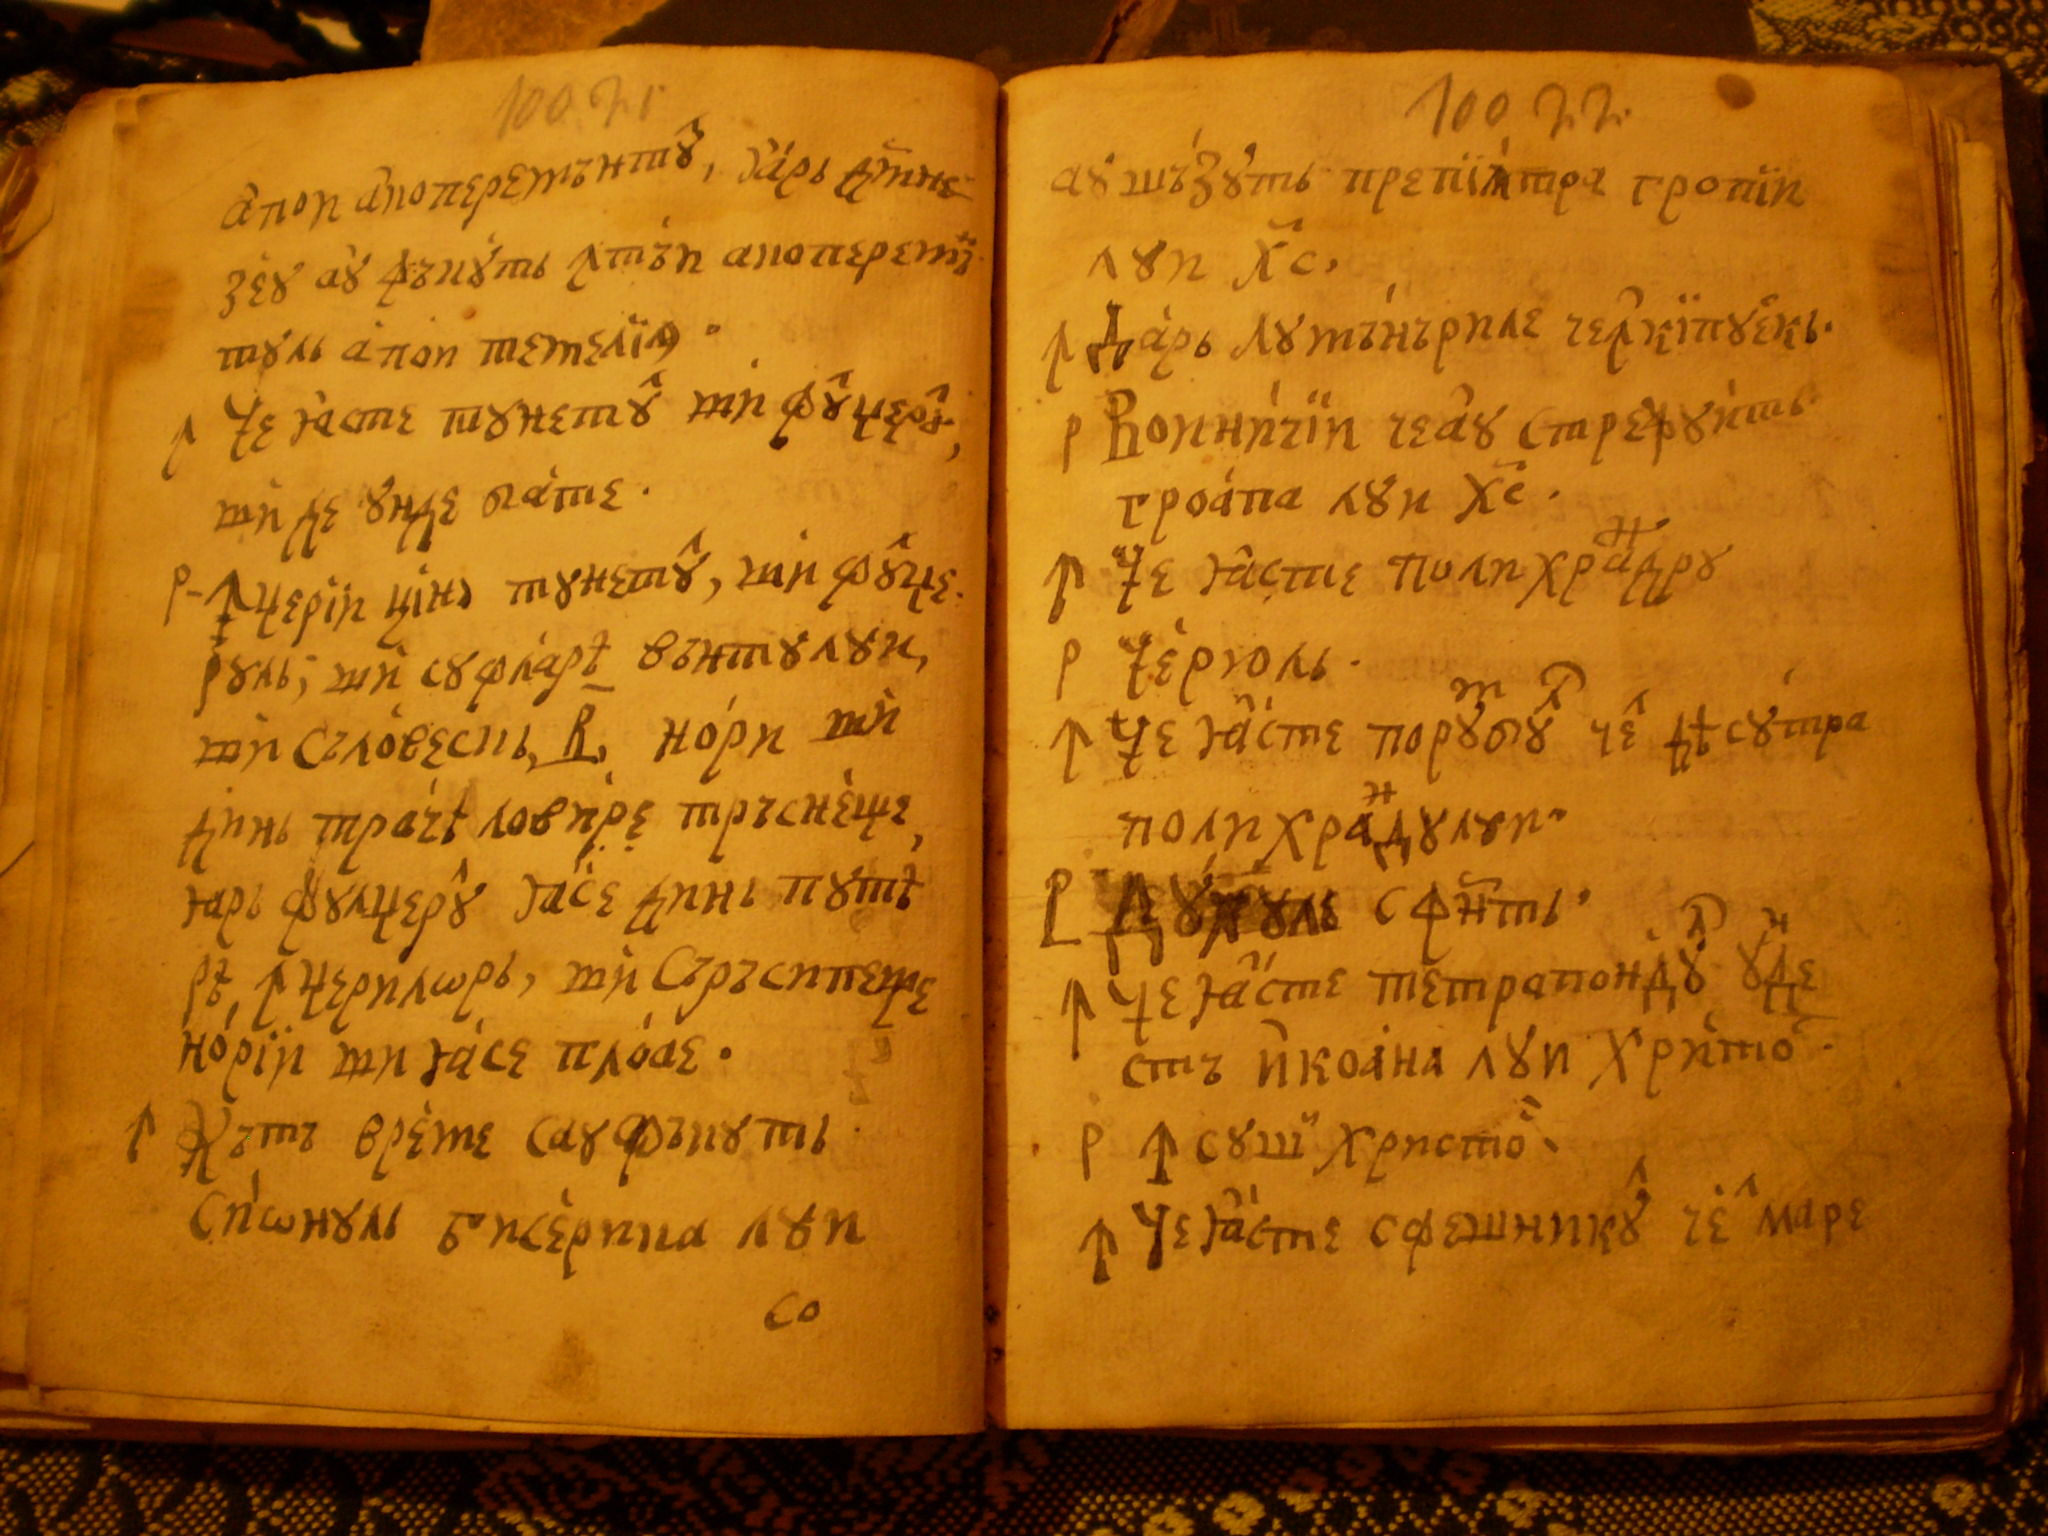 апои апоперемѫнтꙋл, ꙗрь дꙋмне
зеꙋ аꙋ фъкꙋть ꙟтъи апоперемън
тꙋль апои темелїа.
ꙟ Че ꙗсте тꙋнетꙋл ши фꙋлџерꙋл,
ши де ꙋнде бате.
р ꙟџерїи цїнь тꙋнетꙋл, ши фꙋлџе
рꙋль, ши сꙋфларѣ вънтꙋлꙋи,
ши съловескь, в҃, нори ши
динь трачѣ ловире тръснеще,
ꙗрь фꙋлџерꙋл ꙗсе динь пꙋтѣ
рѣ, ꙟџерилѡрь, ши съръсипеще
норїи ши ꙗсе плоае.
ꙟ Кътъ време саꙋ фъкꙋть
Сиѡнꙋль бисерика лꙋи
Со
аꙋ шъзꙋть препїꙗтра гропїи
лꙋи х҃с.
ꙟ Дарь лꙋмънъриле челкїпꙋескь.
р Воиничїи чеаꙋ стрежꙋить
гроапа лꙋи х҃с.
ꙟ Че ꙗсте поликрандрꙋ
р Черюль.
ꙟ Че ꙗсте порꙋмбꙋл чел дѣсꙋпра
полихрандꙋлꙋи.
р Дꙋхꙋль сфнть.
ꙟ Че ꙗсте тетраподꙋл ꙋнде
стъ икоана лꙋи Христос.
р ꙟсꙋш Христос.
ꙟ Че ꙗсте сфешникꙋл чел маре